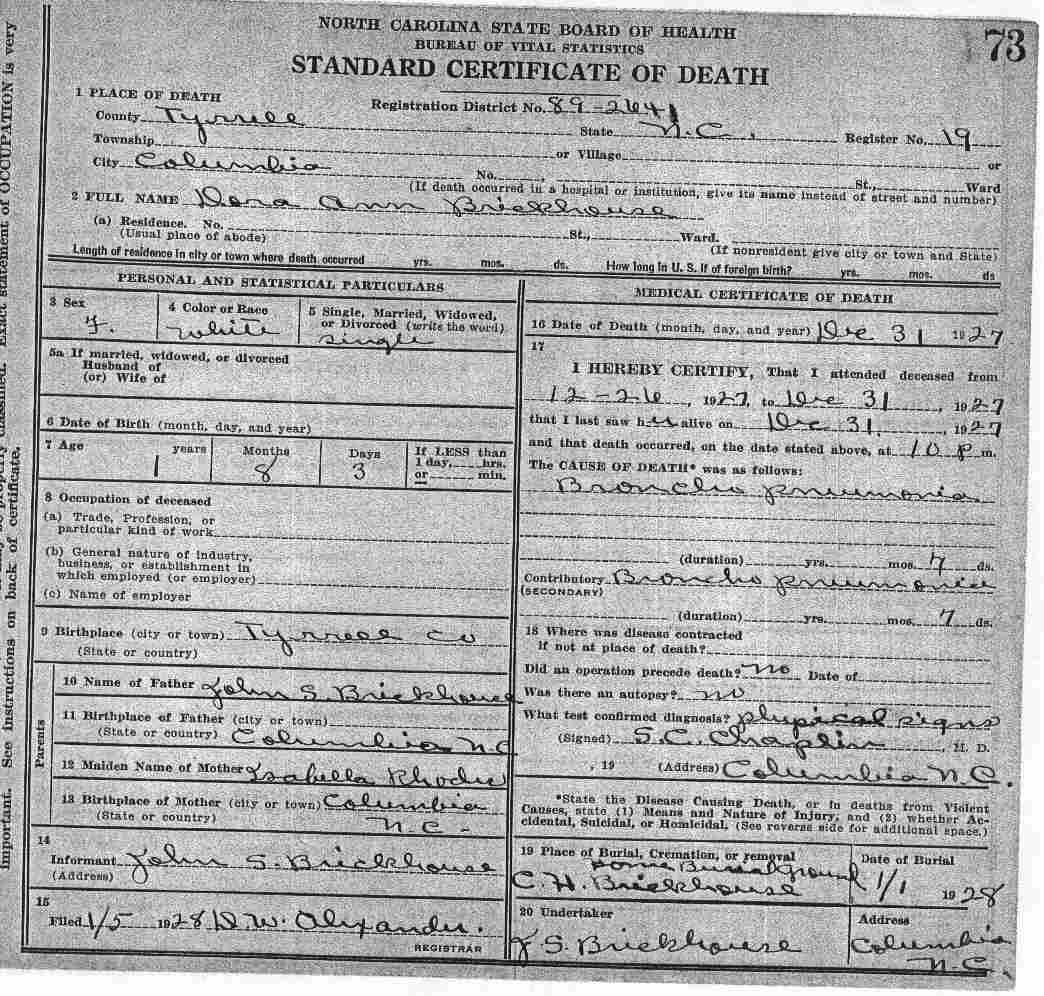 73
NORTH CAROLINA STATE BOARD OF HEALTH
BUREAU OF VITAL STATISTICS
STANDARD CERTIFICATE OF DEATH
1 PLACE OF DEATH
Registration District No. 89-2641
County Tyrrell State N.C. Register No. 19
Township or Village or
City Columbia No. St., Ward
(If death occurred in a hospital or institution, give its name instead of street and number)
2 FULL NAME Dora Ann Brickhouse
(a) Residence. No. St., Ward.
(Usual place of abode) (If nonresident give city or town and State)
Length of residence in city or town where death occurred yrs. mos. ds. How long in U. S. if of foreign birth? yrs. mos. ds
PERSONAL AND STATISTICAL PARTICULARS
3 Sex 4 Color or Race 5 Single, Married, Widowed,
or Divorced (write the word)
F. white single
5a If married, widowed, or divorced
Husband of
(or) Wife of
6 Date of Birth (month, day, and year)
7 Age years Months Days If LESS than
1 day, hrs.
or min.
1 8 3
8 Occupation of deceased
(a) Trade, Profession, or
particular kind of work
(b) General nature of industry,
business, or establishment in
which employed (or employer)
(c) Name of employer
9 Birthplace (city or town) Tyrrell Co
(State or country)
Parents
10 Name of Father John S. Brickhouse
11 Birthplace of Father (city or town)
(State or country) Columbia N.C
12 Maiden Name of Mother Isabella Rhodes
13 Birthplace of Mother (city or town) Columbia
(State or country) N.C.
14
Informant John S. Brickhouse
(Address)
15
Filed 1/5 1928 D.W. Alexander.
REGISTRAR
MEDICAL CERTIFICATE OF DEATH
16 Date of Death (month, day, and year) Dec 31 1927
17
I HEREBY CERTIFY, That I attended deceased from
12-26, 1927, to Dec 31, 1927
that I last saw her alive on Dec 31, 1927
and that death occurred, on the date stated above, at 10 P m.
The CAUSE OF DEATH* was as follows:
Broncho pneumonia
(duration) yrs. mos. 7 ds.
Contributory Broncho pneumonia
(SECONDARY)
(duration) yrs. mos. 7 ds.
18 Where was disease contracted
if not at place of death?
Did an operation precede death? no Date of
Was there an autopsy? no
What test confirmed diagnosis? physical signs
(Signed) S.C. Chaplin, M. D.
, 19 (Address) Columbia N.C.
*State the Disease Causing Death, or in deaths from Violent
Causes, state (1) Means and Nature of Injury, and (2) whether Ac-
cidental, Suicidal, or Homicidal. (See reverse side for additional space.)
19 Place of Burial, Cremation, or removal Date of Burial
Home Burial ground
C. H. Brickhouse 1/1 1928
20 Undertaker Address
J S. Brickhouse Columbia
N.C.
Important. See instructions on back of certificate.
properly classified. Exact statement of OCCUPATION is very